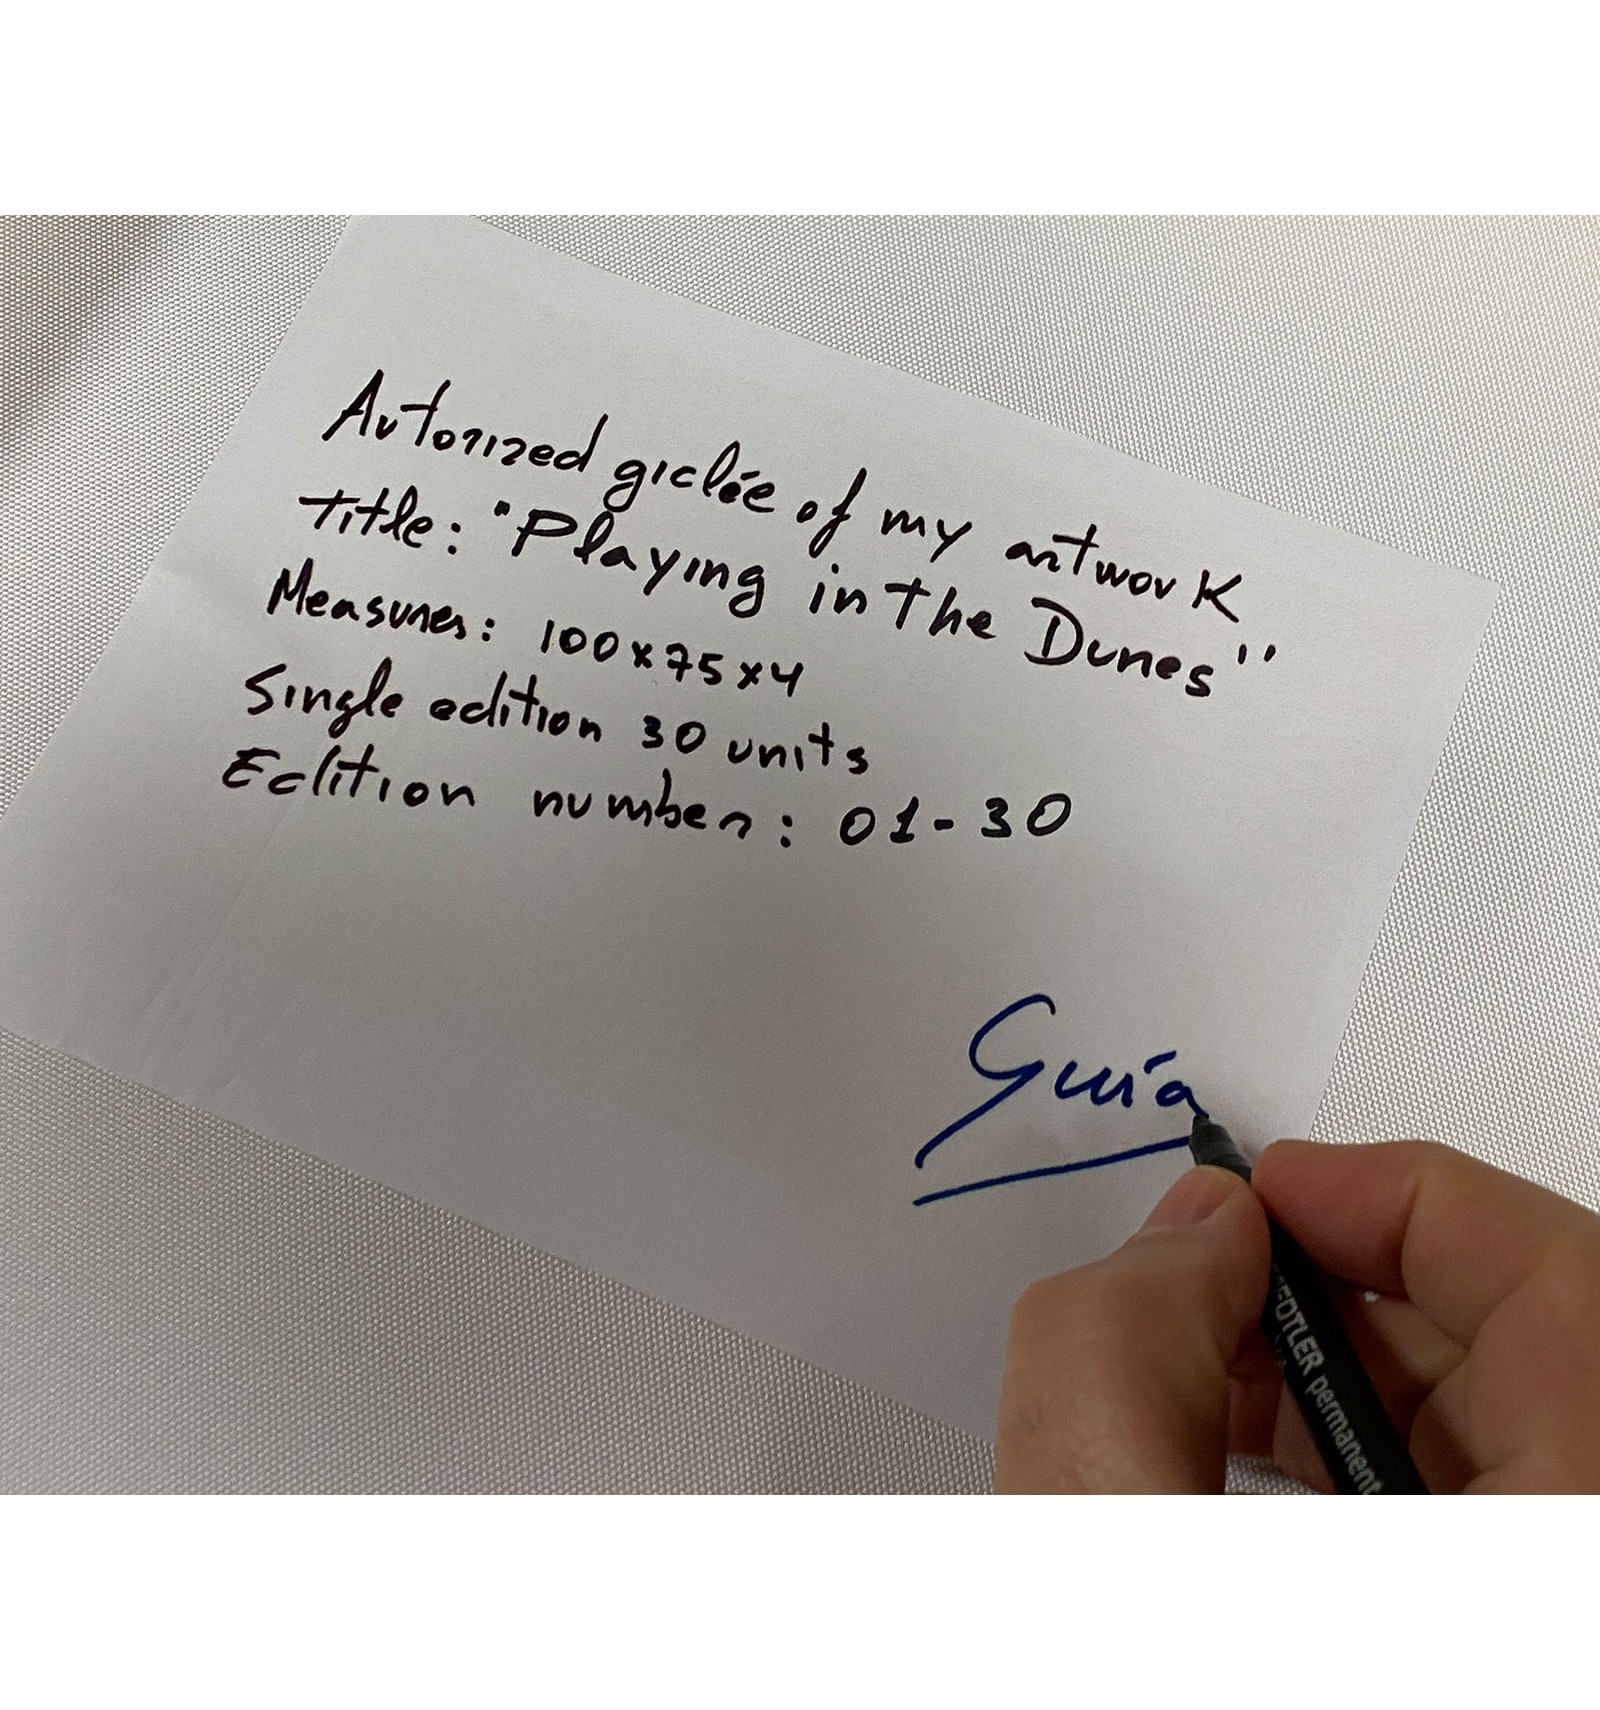 Autorized giclée of my artwork
Title: "Playing in the Dunes"
Measures: 100x75x4
Single edition 30 units
Edition number: 01-30
Guía
permanent